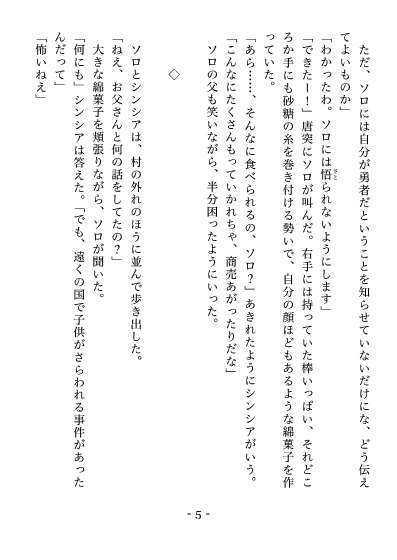 ただ、ソロには自分が勇者だということを知らせていないだけにな、どう伝え
てよいものか」
「わかったわ。ソロには悟られないようにします」
「できたー！」唐突にソロが叫んだ。右手には持っていた棒いっぱい、それどこ
ろか手にも砂糖の糸を巻き付ける勢いで、自分の顔ほどもあるような綿菓子を作
っていた。
「あら……、そんなに食べられるの、ソロ？」あきれたようにシンシアがいう。
「こんなにたくさんもっていかれちゃ、商売あがったりだな」
ソロの父も笑いながら、半分困ったようにいった。
◇
ソロとシンシアは、村の外れのほうに並んで歩き出した。
「ねえ、お父さんと何の話をしてたの？」
大きな綿菓子を頬張りながら、ソロが聞いた。
「何にも」シンシアは答えた。「でも、遠くの国で子供がさらわれる事件があった
んだって」
「怖いねえ」
- 5 -